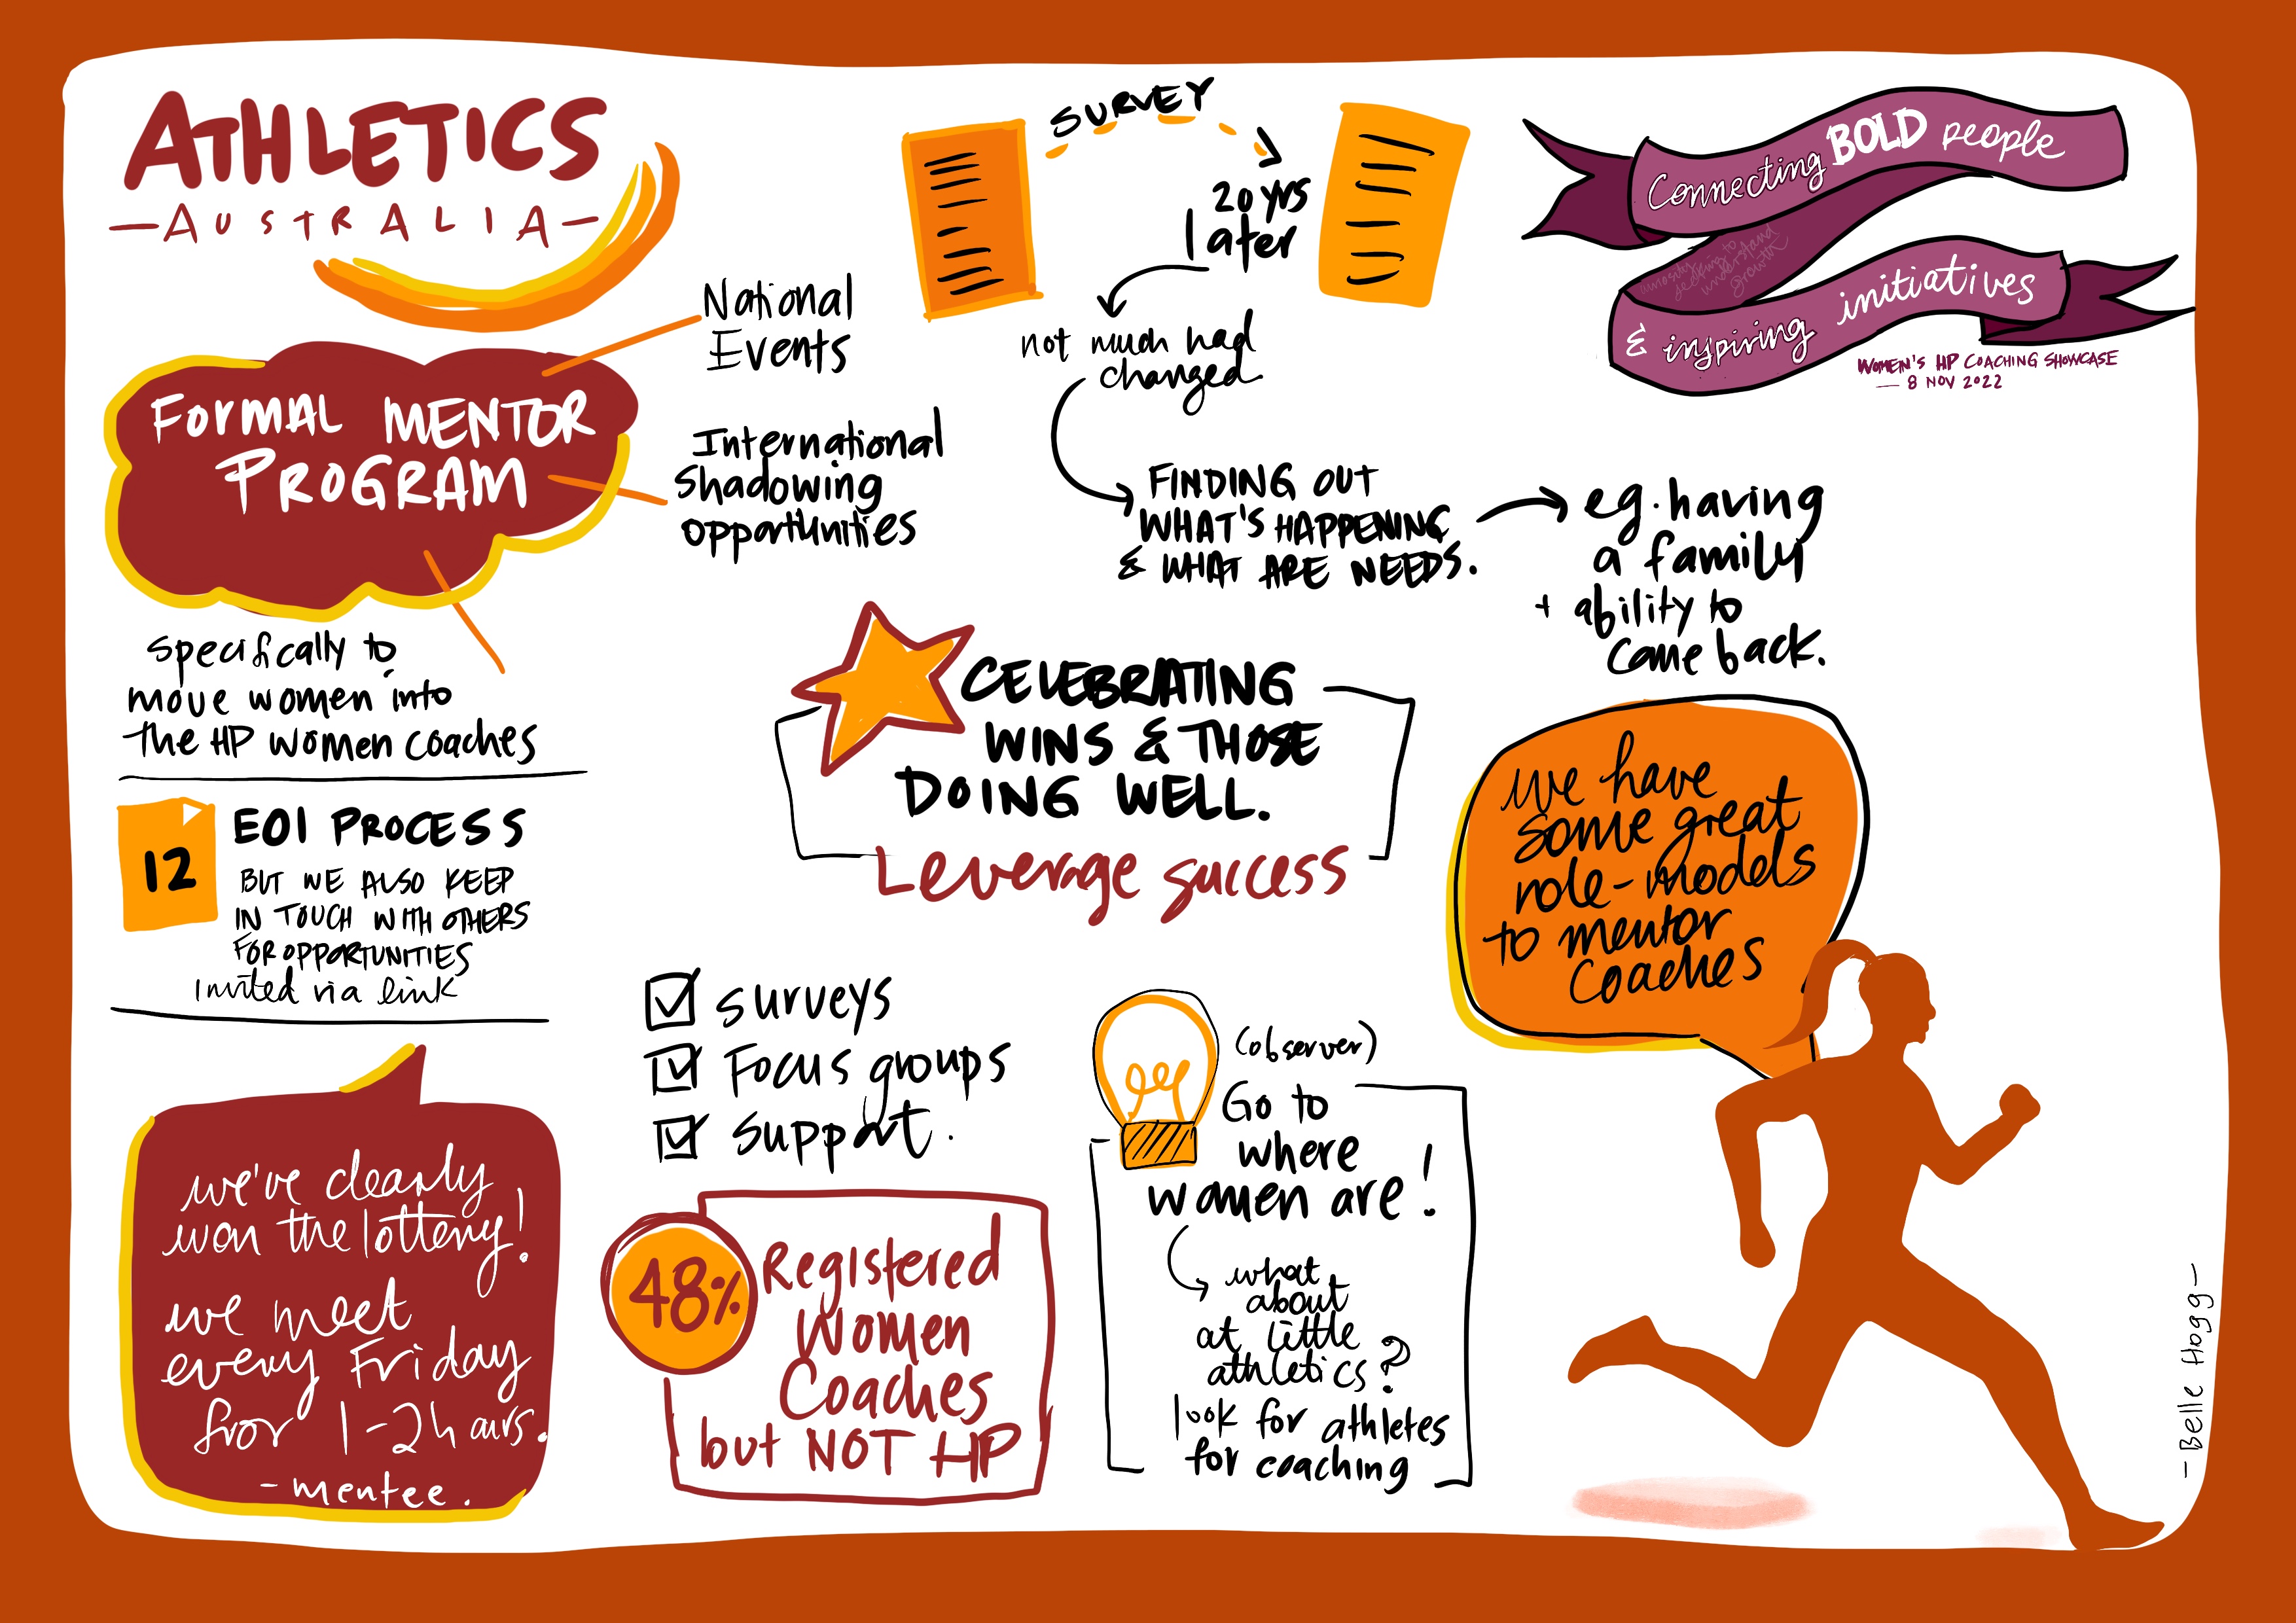 ATHLETICS
—AUSTRALIA—
FORMAL MENTOR
PROGRAM
National
Events
International
Shadowing
opportunities
specifically to
move women into
the HP women coaches
12
EOI PROCESS
BUT WE ALSO KEEP
IN TOUCH WITH OTHERS
FOR OPPORTUNITIES
Invited via link
we've clearly
won the lottery!
we meet
every Friday
for 1-2 hours.
- mentee.
SURVEY
20 yrs
later
not much had
changed
FINDING OUT
WHAT'S HAPPENING
& WHAT ARE NEEDS.
eg. having
a family
+ ability to
come back.
CELEBRATING
WINS & THOSE
DOING WELL.
Leverage success
surveys
Focus groups
support.
48%
Registered
Women
Coaches
but NOT HP
(observer)
Go to
where
women are!
what
about
at little
athletics?
look for athletes
for coaching
Connecting BOLD people
& inspiring initiatives
WOMEN'S HP COACHING SHOWCASE
— 8 NOV 2022
we have
some great
role-models
to mentor
Coaches
— Belle Hogg —